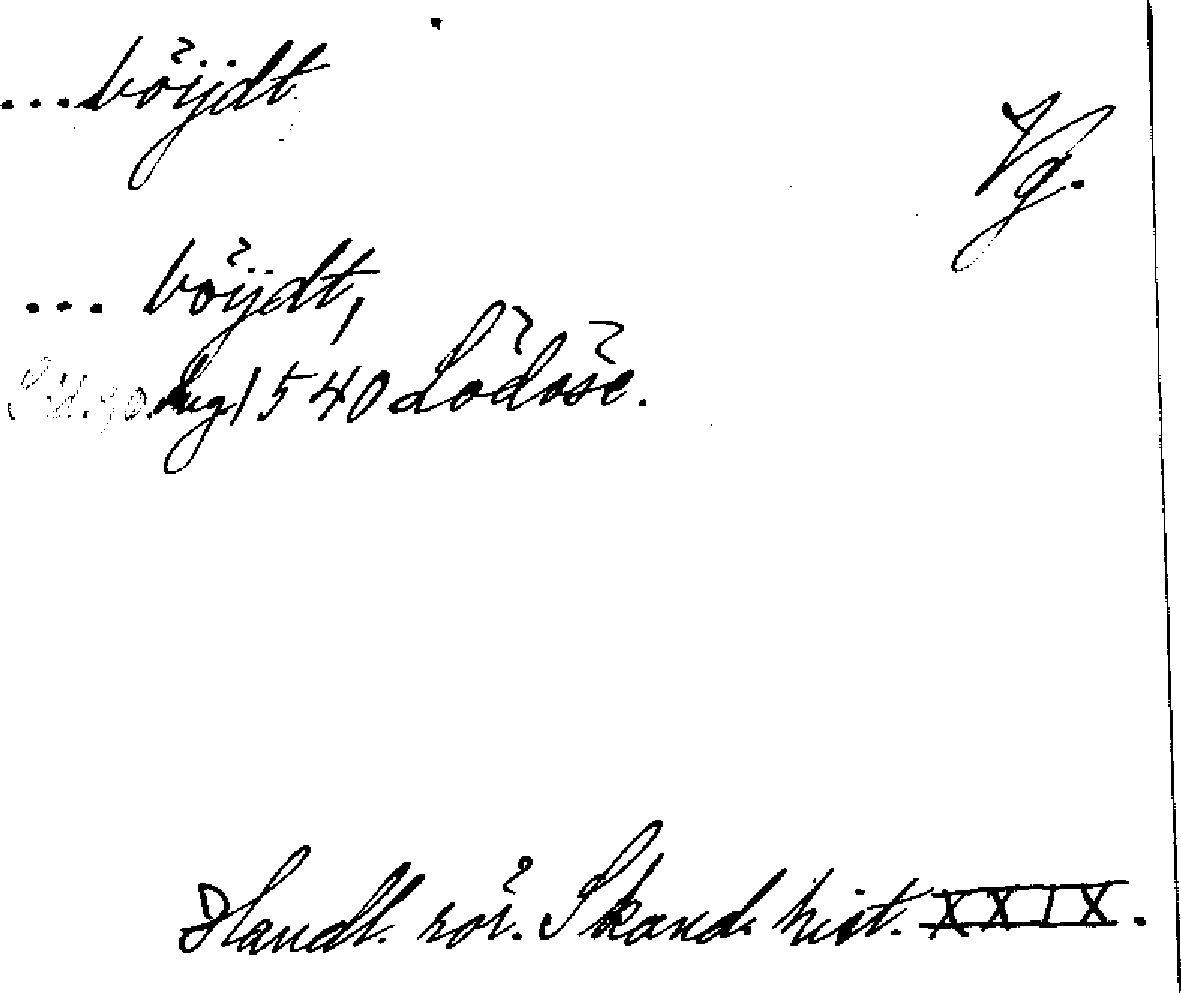 ...böijdt
Vg.
... böijdt,
Aug 1540 Lödöse.
Handl. rör. Skand. hist. XXIX.